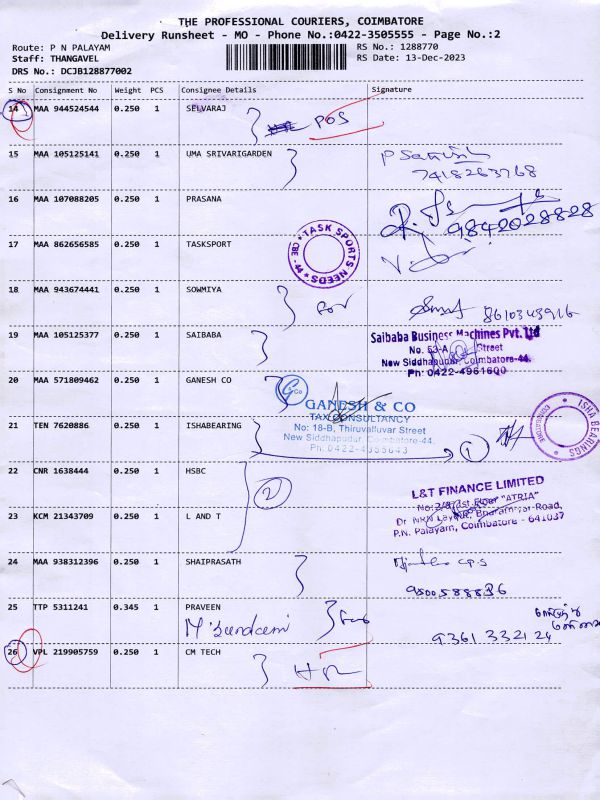 THE PROFESSIONAL COURIERS, COIMBATORE
Delivery Runsheet - MO - Phone No.:0422-3505555 - Page No.:2
Route: P N PALAYAM
Staff: THANGAVEL
DRS No.: DCJB128877002
RS No.: 1288770
RS Date: 13-Dec-2023
S No Consignment No Weight PCS Consignee Details Signature
14 MAA 944524544 0.250 1 SELVARAJ
POS
15 MAA 105125141 0.250 1 UMA SRIVARIGARDEN
7418263768
16 MAA 107088205 0.250 1 PRASANA
9842028828
17 MAA 862656585 0.250 1 TASKSPORT
TASK SPORTS NEEDS
CBE - 44
18 MAA 943674441 0.250 1 SOWMIYA
19 MAA 105125377 0.250 1 SAIBABA
Saibaba Business Machines Pvt. Ltd
No. 53-A Street
New Siddhapudur, Coimbatore-44.
Ph: 0422-4961600
20 MAA 571809462 0.250 1 GANESH CO
GANESH & CO
TAX CONSULTANCY
No: 18-B, Thiruvalluvar Street
New Siddhapudur, Coimbatore-44.
21 TEN 7620886 0.250 1 ISHABEARING
1
ISHA BEARINGS
22 CNR 1638444 0.250 1 HSBC
2
23 KCM 21343709 0.250 1 L AND T
L&T FINANCE LIMITED
"ATRIA"
P.N. Palayam, Coimbatore - 641037
24 MAA 938312396 0.250 1 SHAIPRASATH
25 TTP 5311241 0.345 1 PRAVEEN
9361 332124
26 VPL 219905759 0.250 1 CM TECH